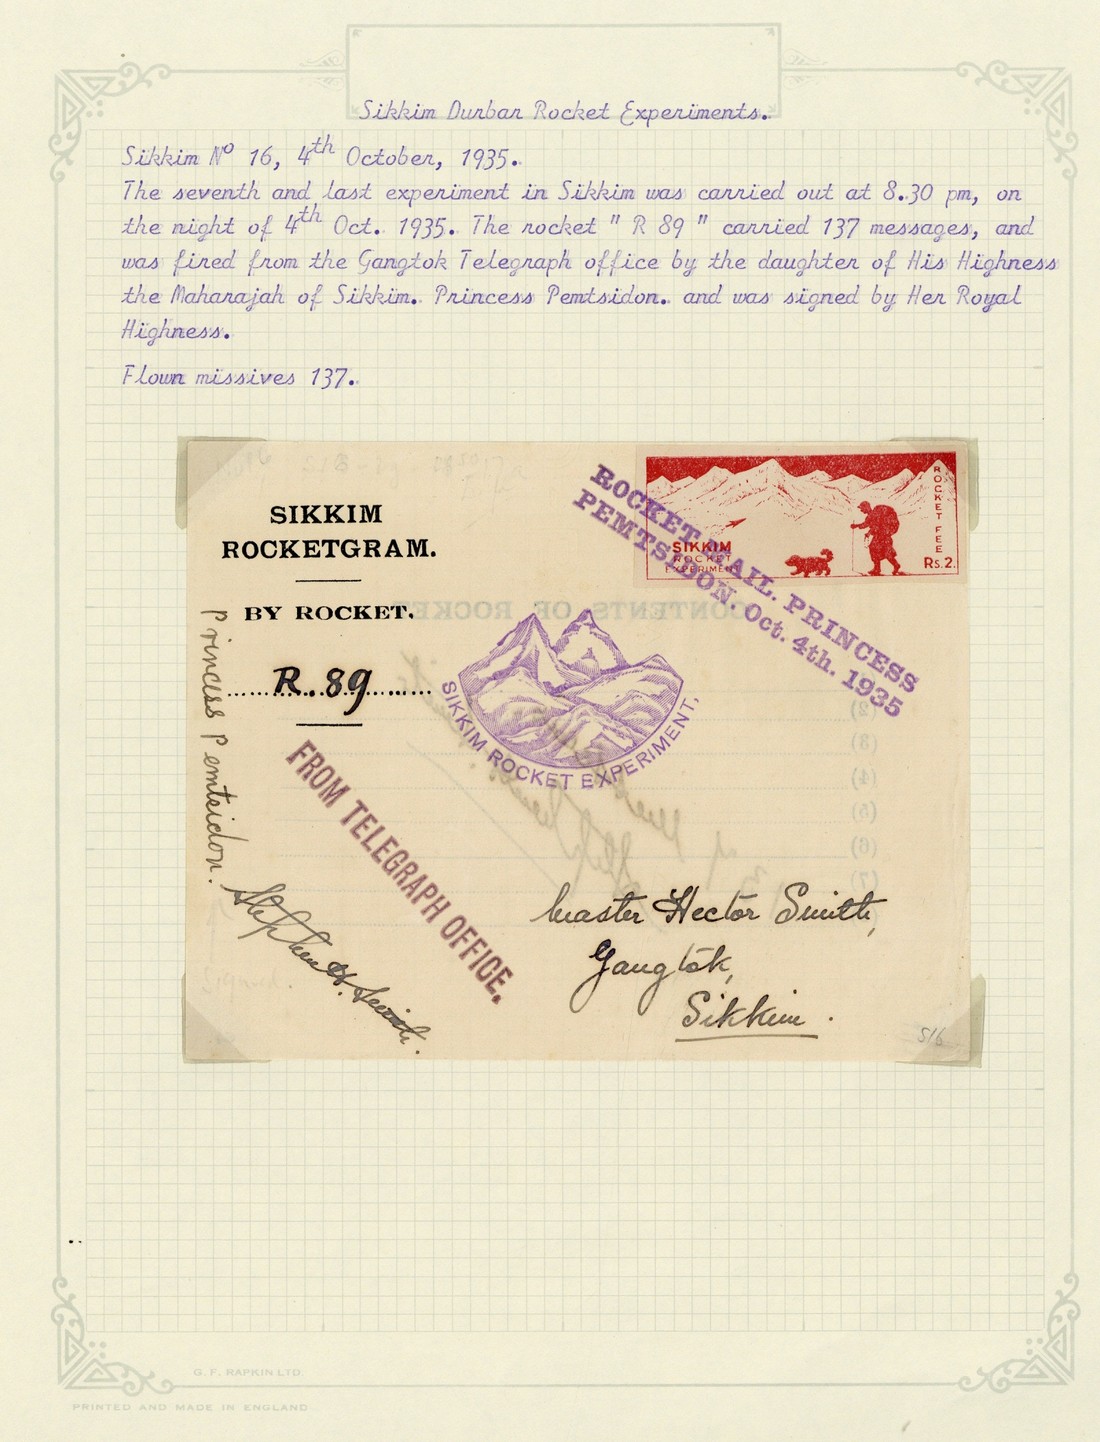 Sikkim Durbar Rocket Experiments.
Sikkim Nº 16, 4th October, 1935.
The seventh and last experiment in Sikkim was carried out at 8.30 pm, on
the night of 4th Oct. 1935. The rocket " R 89 " carried 137 messages, and
was fired from the Gangtok Telegraph office by the daughter of His Highness
the Maharajah of Sikkim. Princess Pemtsidon. and was signed by Her Royal
Highness.
Flown missives 137.
SIKKIM
ROCKETGRAM.
BY ROCKET.
R.89
ROCKET MAIL. PRINCESS
PEMTSIDON Oct. 4th. 1935
SIKKIM
ROCKET
EXPERIMENT
ROCKET FEE
Rs.2.
SIKKIM ROCKET EXPERIMENT.
CONTENTS OF ROCKET
(2)
(3)
(4)
(5)
(6)
(7)
Princess Pemteidon.
FROM TELEGRAPH OFFICE.
Stephen H. Smith.
Master Hector Smith,
Gangtok,
Sikkim.
S16
G. F. RAPKIN LTD.
PRINTED AND MADE IN ENGLAND